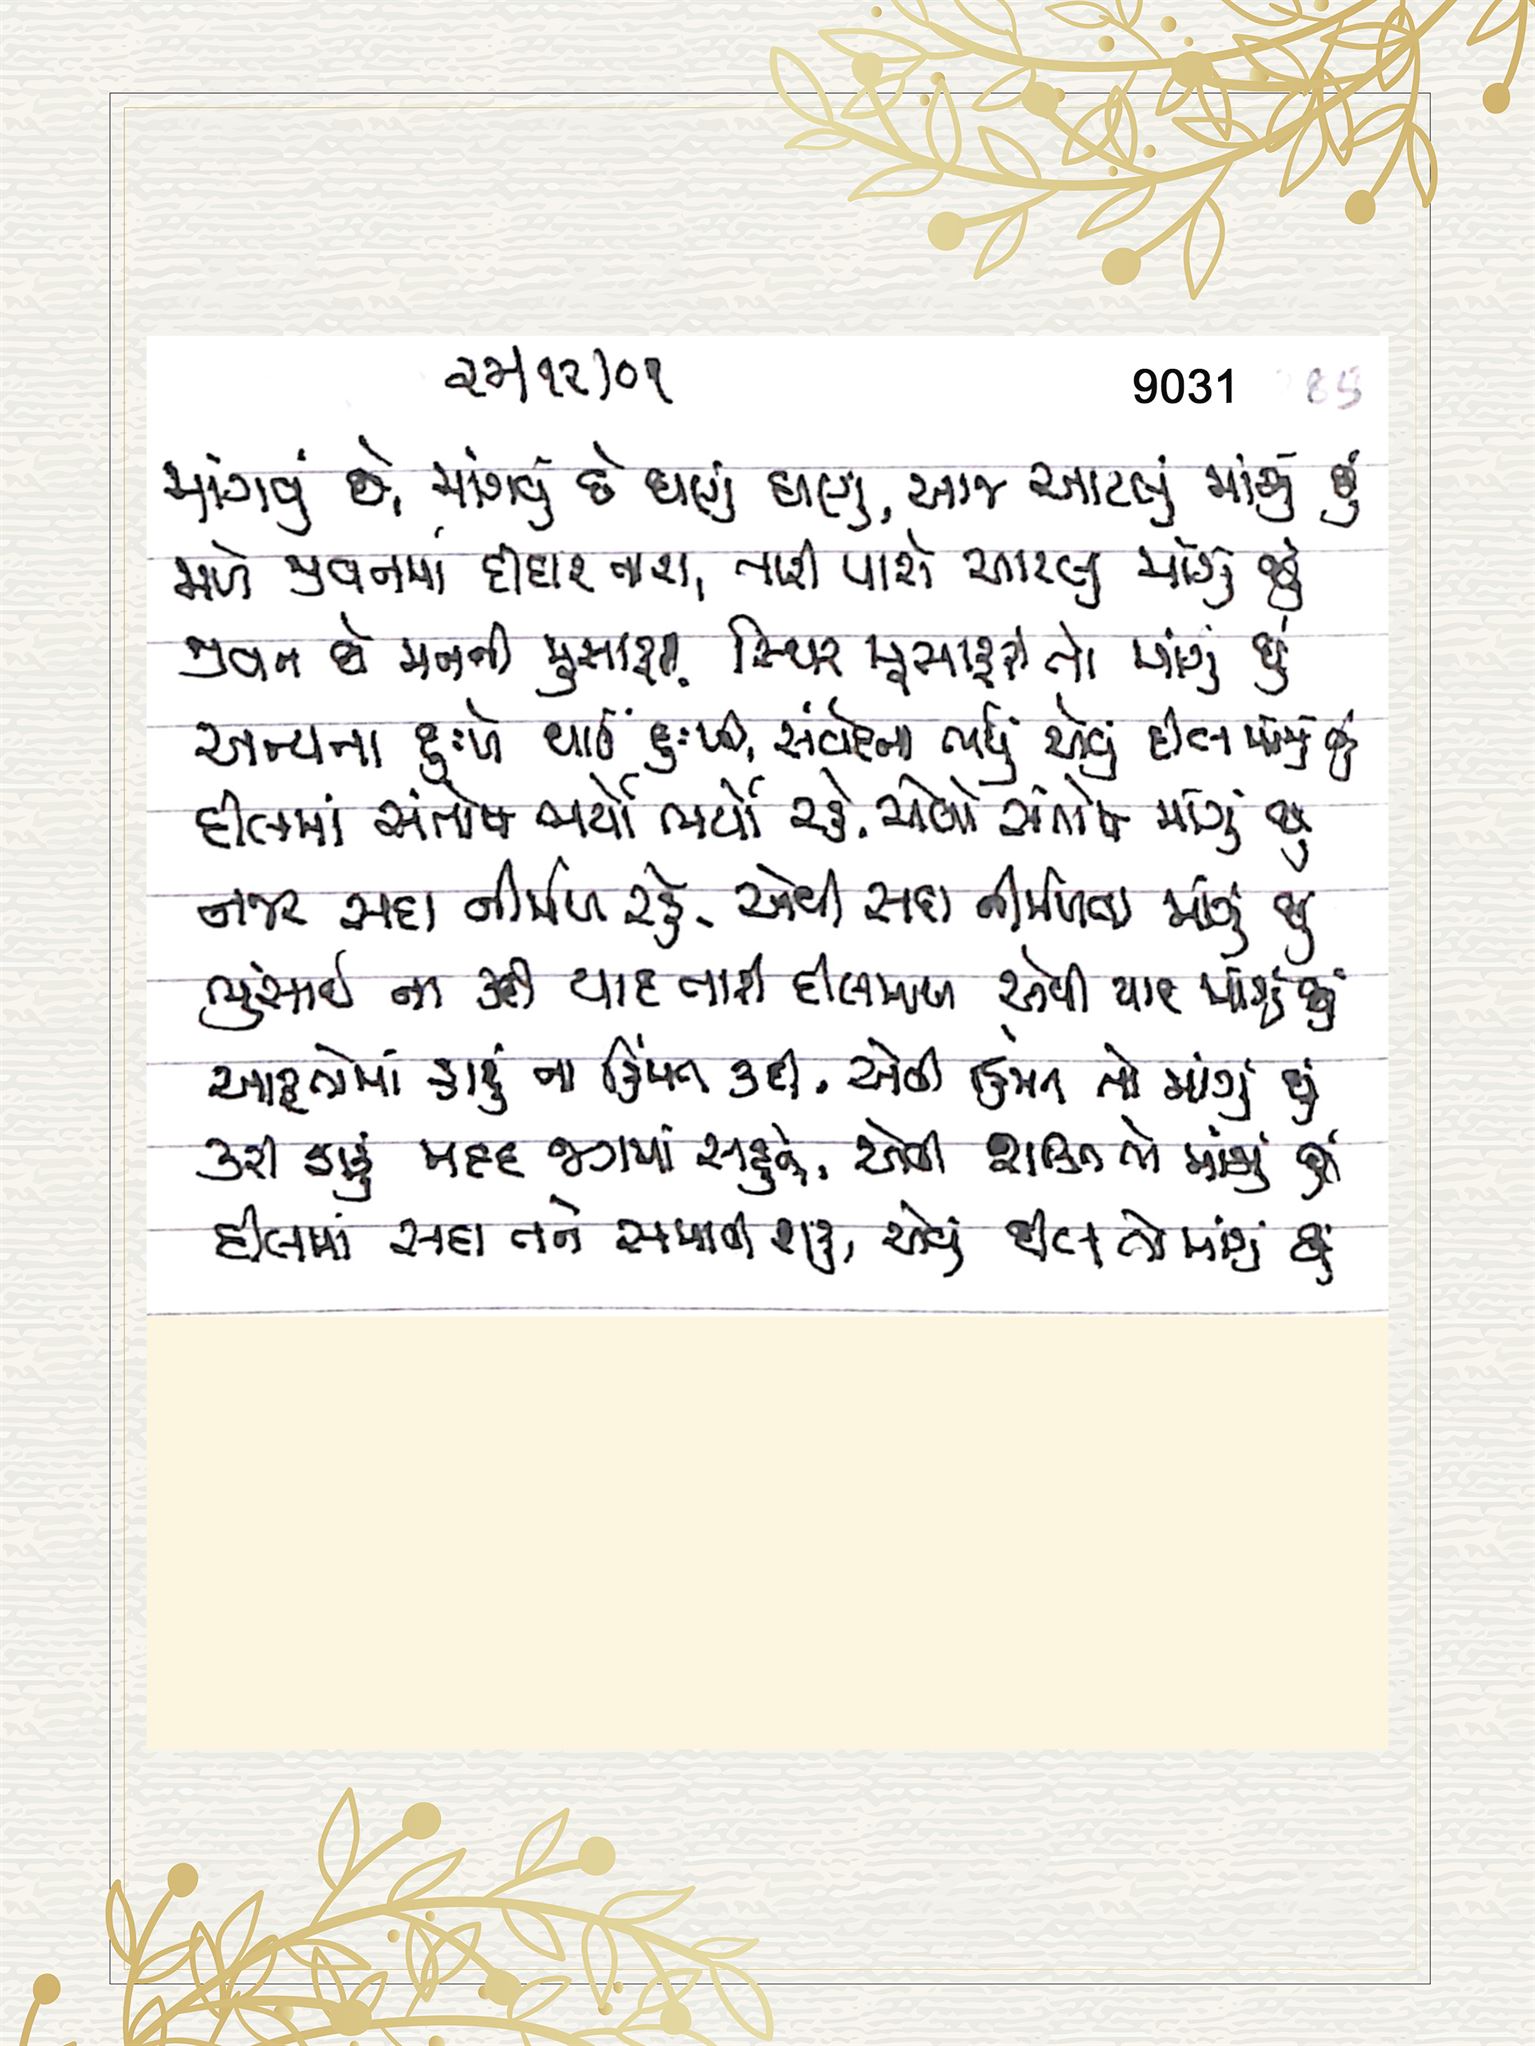 ૨૭/૧૨/૦૧
9031
85
માંગવું છે, માંગવું છે ઘણું ઘણું, આજ આટલું માંગું છું
મળે જીવનમાં દીદાર તારા, તારી પાસે આટલું માંગું છું
જીવન છે મનની મુસાફરી, સ્થિર મુસાફરી તો માંગું છું
અન્યના દુઃખે થાઉં દુઃખી, સંવેદના ભર્યું એવું દીલ માંગું છું
દીલમાં સંતોષ ભર્યો ભર્યો રહે, એવો સંતોષ માંગું છું
નજર સદા નીર્મળ રહે, એવી સદા નીર્મળતા માંગું છું
ભુંસાઈ ના કદી યાદ તારી દીલમાંથી એવી યાદ માંગું છું
આફતોમાં હારું ના હિંમત કદી, એવી હિંમત તો માંગું છું
કરી શકું મદદ જગમાં સહુને, એવી શક્તિ તો માંગું છું
દીલમાં સદા તને સમાવી શકું, એવું દીલ તો માંગું છું